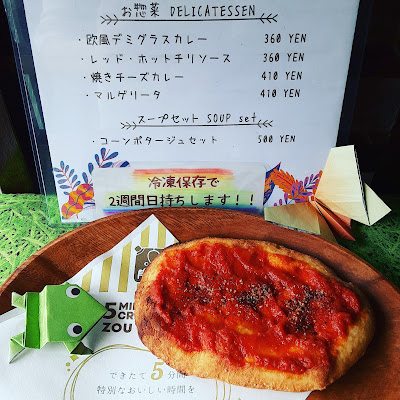 お惣菜 DELICATESSEN
・欧風デミグラスカレー 360 YEN
・レッド・ホットチリソース 360 YEN
・焼きチーズカレー 410 YEN
・マルゲリータ 410 YEN
スープセット SOUP set
・コーンポタージュセット 500 YEN
冷凍保存で
2週間日持ちします!!
5 MI
CR
ZOU
できたて5分間
特別なおいしい時間を